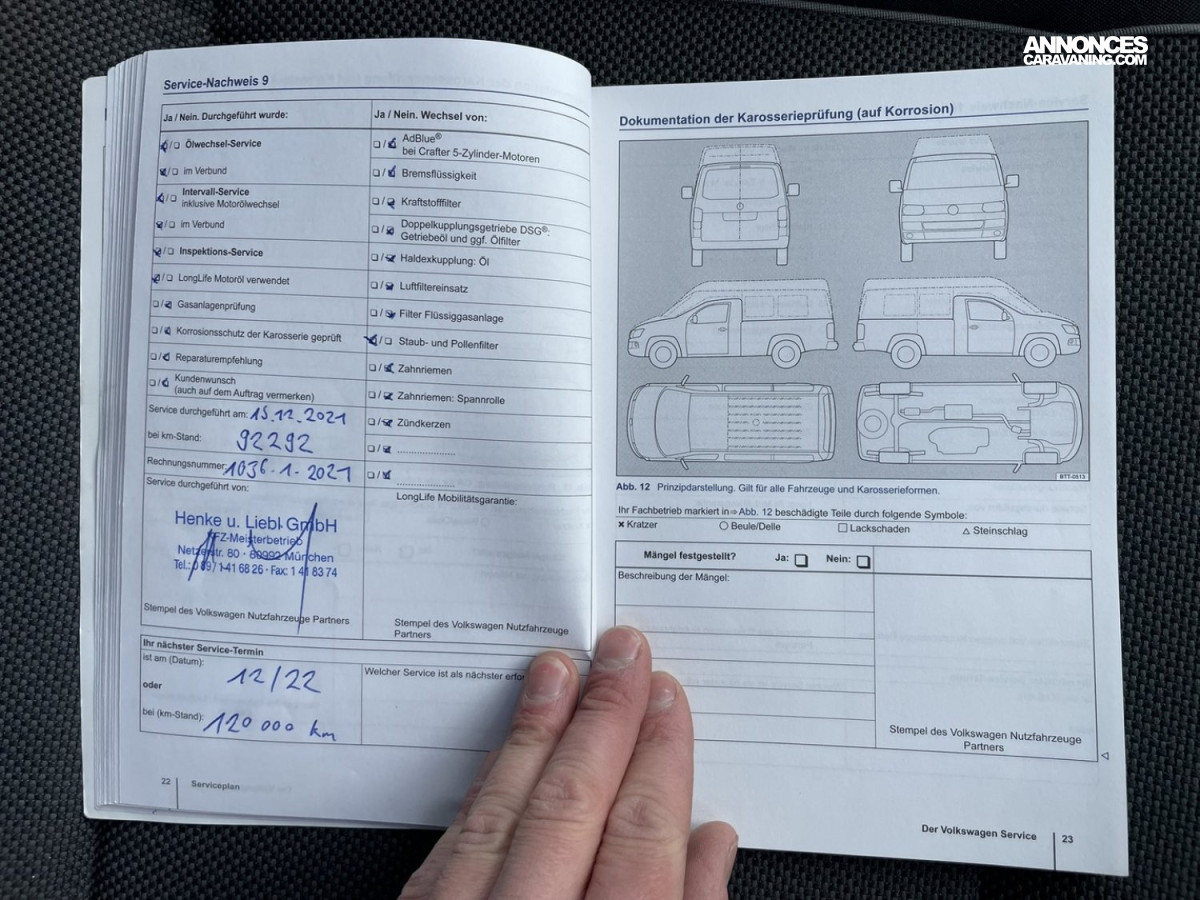 ANNONCES
CARAVANING.COM
Service-Nachweis 9
Ja / Nein. Durchgeführt wurde:
Ölwechsel-Service
im Verbund
Intervall-Service
inklusive Motorölwechsel
im Verbund
Inspektions-Service
LongLife Motoröl verwendet
Gasanlagenprüfung
Korrosionsschutz der Karosserie geprüft
Reparaturempfehlung
Kundenwunsch
(auch auf dem Auftrag vermerken)
Service durchgeführt am: 15.12.2021
bei km-Stand: 92292
Rechnungsnummer 1036-1-2021
Service durchgeführt von:
Henke u. Liebl GmbH
KFZ-Meisterbetrieb
Netzerstr. 80 · 80992 München
Tel.: 089 / 1 41 68 26 · Fax: 1 41 83 74
Stempel des Volkswagen Nutzfahrzeuge Partners
Ja / Nein. Wechsel von:
AdBlue®
bei Crafter 5-Zylinder-Motoren
Bremsflüssigkeit
Kraftstofffilter
Doppelkupplungsgetriebe DSG®:
Getriebeöl und ggf. Ölfilter
Haldexkupplung: Öl
Luftfiltereinsatz
Filter Flüssiggasanlage
Staub- und Pollenfilter
Zahnriemen
Zahnriemen: Spannrolle
Zündkerzen
LongLife Mobilitätsgarantie:
Stempel des Volkswagen Nutzfahrzeuge
Partners
Ihr nächster Service-Termin
ist am (Datum): 12/22
oder
bei (km-Stand): 120 000 km
Welcher Service ist als nächster erfo
22 Serviceplan
Dokumentation der Karosserieprüfung (auf Korrosion)
BTT-0513
Abb. 12 Prinzipdarstellung. Gilt für alle Fahrzeuge und Karosserieformen.
Ihr Fachbetrieb markiert in ⇒ Abb. 12 beschädigte Teile durch folgende Symbole:
× Kratzer ○ Beule/Delle □ Lackschaden △ Steinschlag
Mängel festgestellt? Ja: □ Nein: □
Beschreibung der Mängel:
Stempel des Volkswagen Nutzfahrzeuge
Partners
Der Volkswagen Service 23